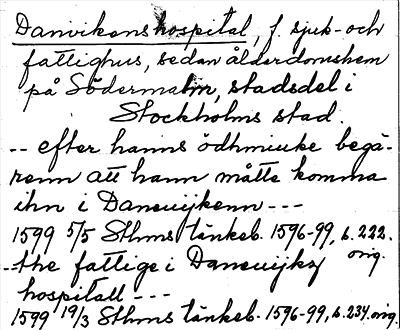 Danvikenshospital, f. sjuk- och
fattighus, sedan ålderdomshem
på Södermalm, stadsdel i
Stockholms stad.
-- efter hanns ödhmiuke begä-
renn att hann måtte komma
ihn i Daneuijkenn ---
1599 5/5 Sthms tänkeb. 1596-99, s. 222.
orig.
-- the fattige i Daneuijkz
hospitall ---
1599 19/3 Sthms tänkeb. 1596-99, s. 234. orig.